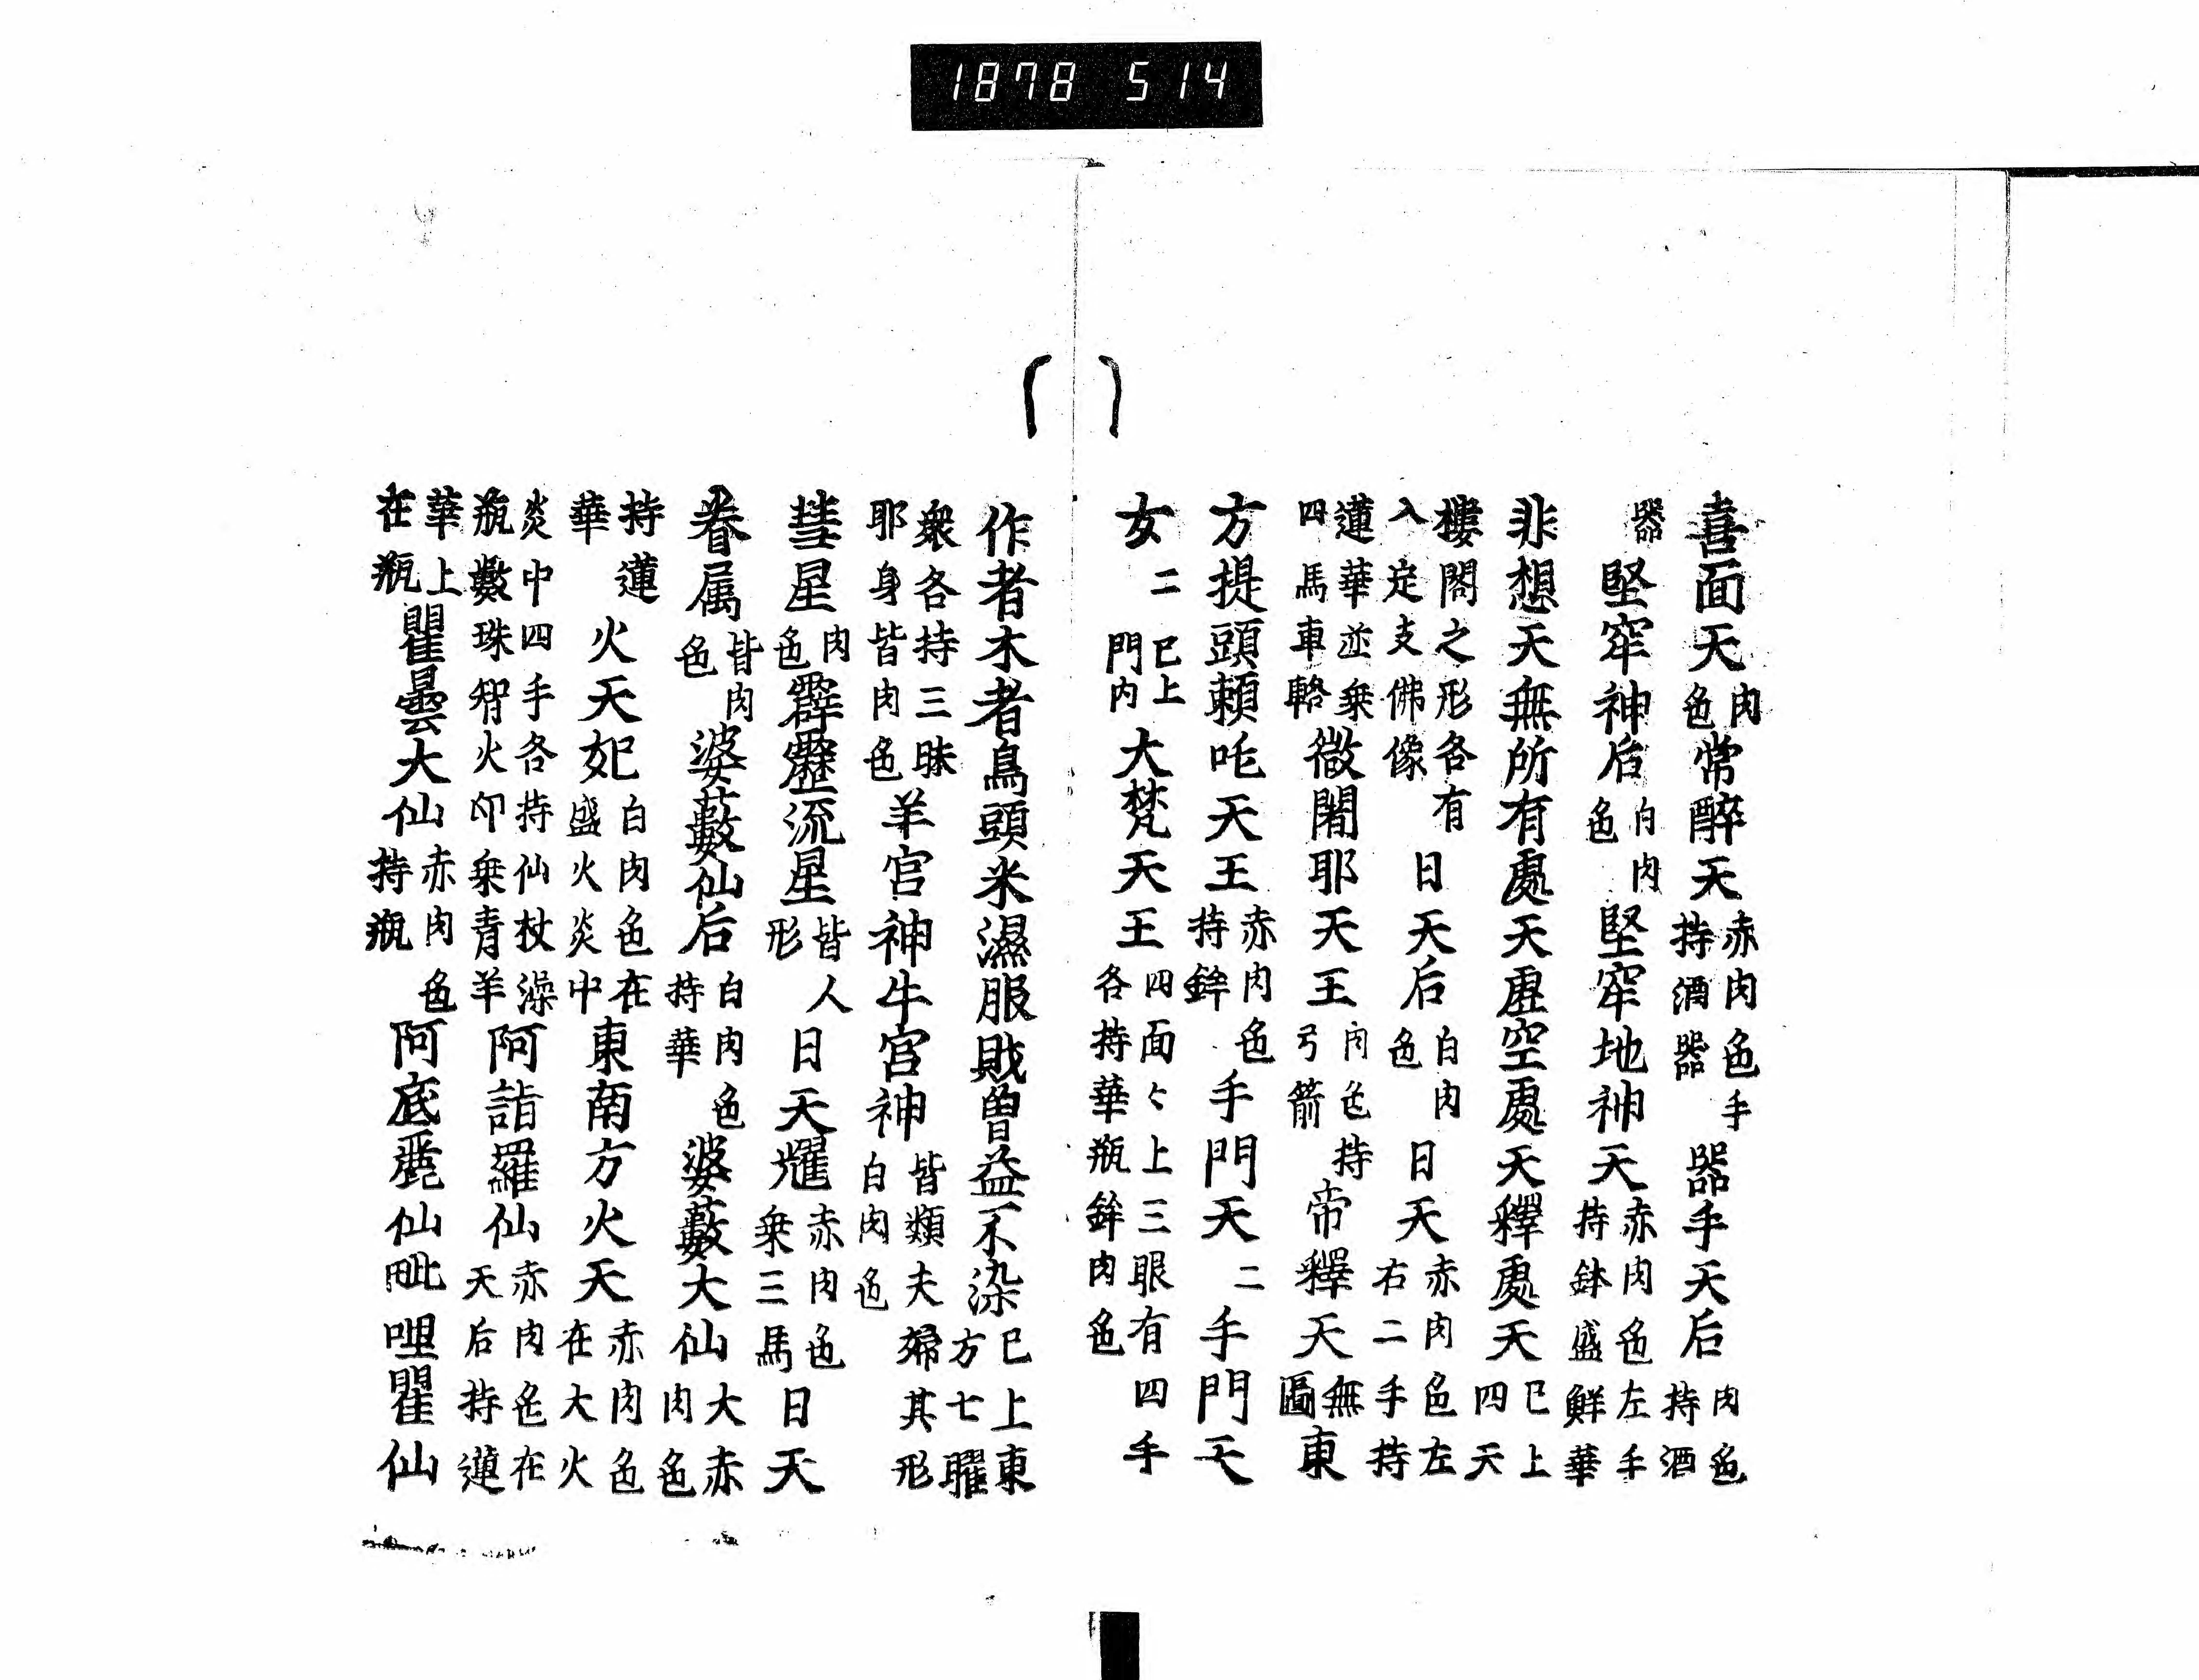 1878 514
喜面天肉色常醉天赤肉色手持酒器器手天后肉色持酒
器堅窂神后白肉色堅窂地神天赤肉色左手持鉢盛鮮華
非想天無所有處天虛空處天釋處天已上四天
樓閣之形各有入定支佛像日天后白肉色日天赤肉色左右二手持
蓮華並乗四馬車輅微闍耶天王肉色持弓箭帝釋天無圖東
方提頭賴吒天王赤肉色持鉾手門天二手門天
女二已上門内大梵天王四面〻上三眼有四手各持華瓶鉾肉色
作者木者鳥頭米濕服賊曽益不染已上東方七曜
衆各持三昧耶身皆肉色羊宮神牛宮神皆類夫婦其形白肉色
彗星肉色霹靂流星皆人形日天耀赤肉色乗三馬日天
眷属皆肉色婆藪仙后白肉色持華婆藪大仙大赤肉色
持蓮華火天妃白肉色在盛火炎中東南方火天赤肉色在大火
炎中四手各持仙杖澡瓶數珠智火印乗青羊阿詣羅仙赤肉色在天后持蓮
華上在瓶瞿曇大仙赤肉色持瓶阿底麗仙毗哩瞿仙